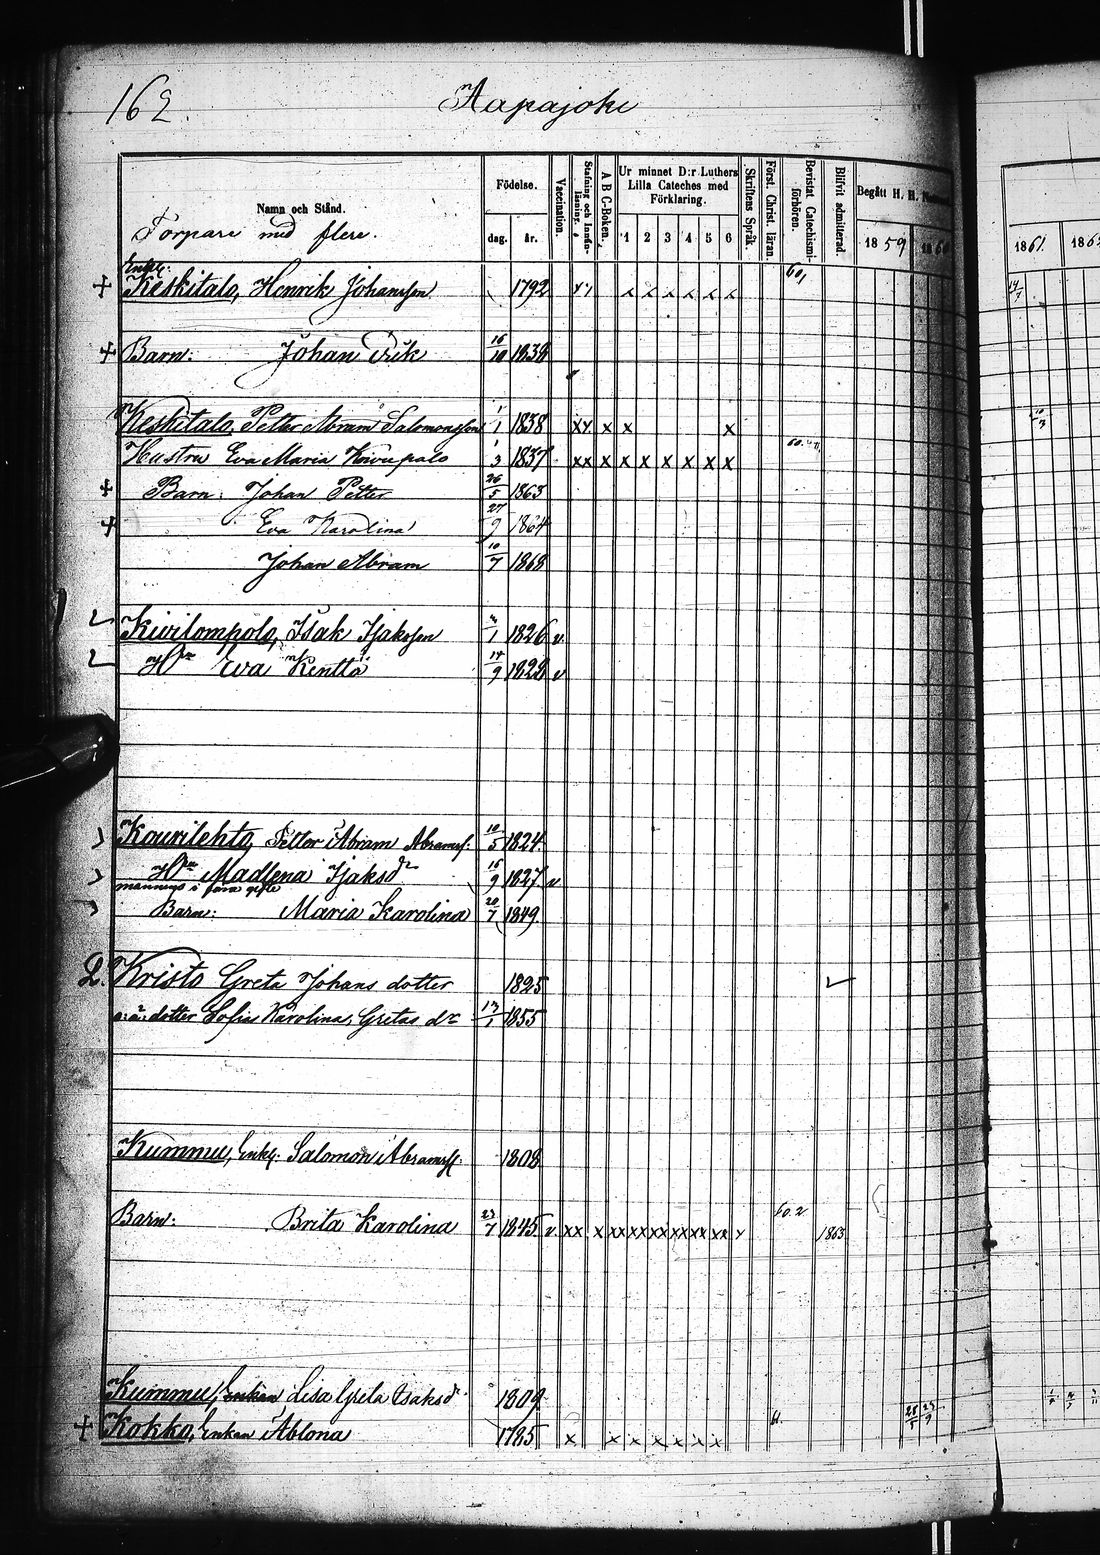 162.
Aapajoki
Namn och Stånd.
Torpare med flere.
Födelse.
dag. år.
Vaccination.
A B C-Boken.
Ur minnet D:r Luthers
Lilla Cateches med
Förklaring.
1 2 3 4 5 6
Skriftens Språk.
Först. Christ. läran.
Bevistat Catechismi-
förhören.
Blifvit admitterad.
Begått H. H.
1859 1860
1861. 1862
Enkl:
+ Keskitalo, Henrik Johansson 1792 x x x x x x 60,
+ Barn: Johan Erik 16/10 1838
Keskitalo, Petter Abram Salomonsson 1/1 1838 xx x x x
Hustru Eva Maria Koivupalo 1/3 1837 xx x x x x x x x
+ Barn: Johan Petter 26/5 1863
+ Eva Karolina 27/9 1864
Johan Abram 10/7 1868
Kivilompolo, Isak Isaksson 1826 v.
H:n Eva Kenttä 14/9 1828 v
Kourilehto, Petter Abram Abramss: 10/5 1824
H:n Madlena Isaksd:r 16/9 1827 v
mannens i förra gifte
Barn: Maria Karolina 20/7 1849
2. Kristo Greta Johans dotter 1825
o: ä: dotter Sofia Karolina, Gretas d:r 13/1 1855
Kummu, Enkl. Salomon Abramss: 1808
Barn: Brita Karolina 23/7 1845 v. xx x xx xx xx xx xx xx 60.2 1863
Kummu, Enkan Lisa Greta Isaksd:r 1809
+ Kokko, Enkan Ablona 1785 x x x x x x x 61. 28/5 23/9